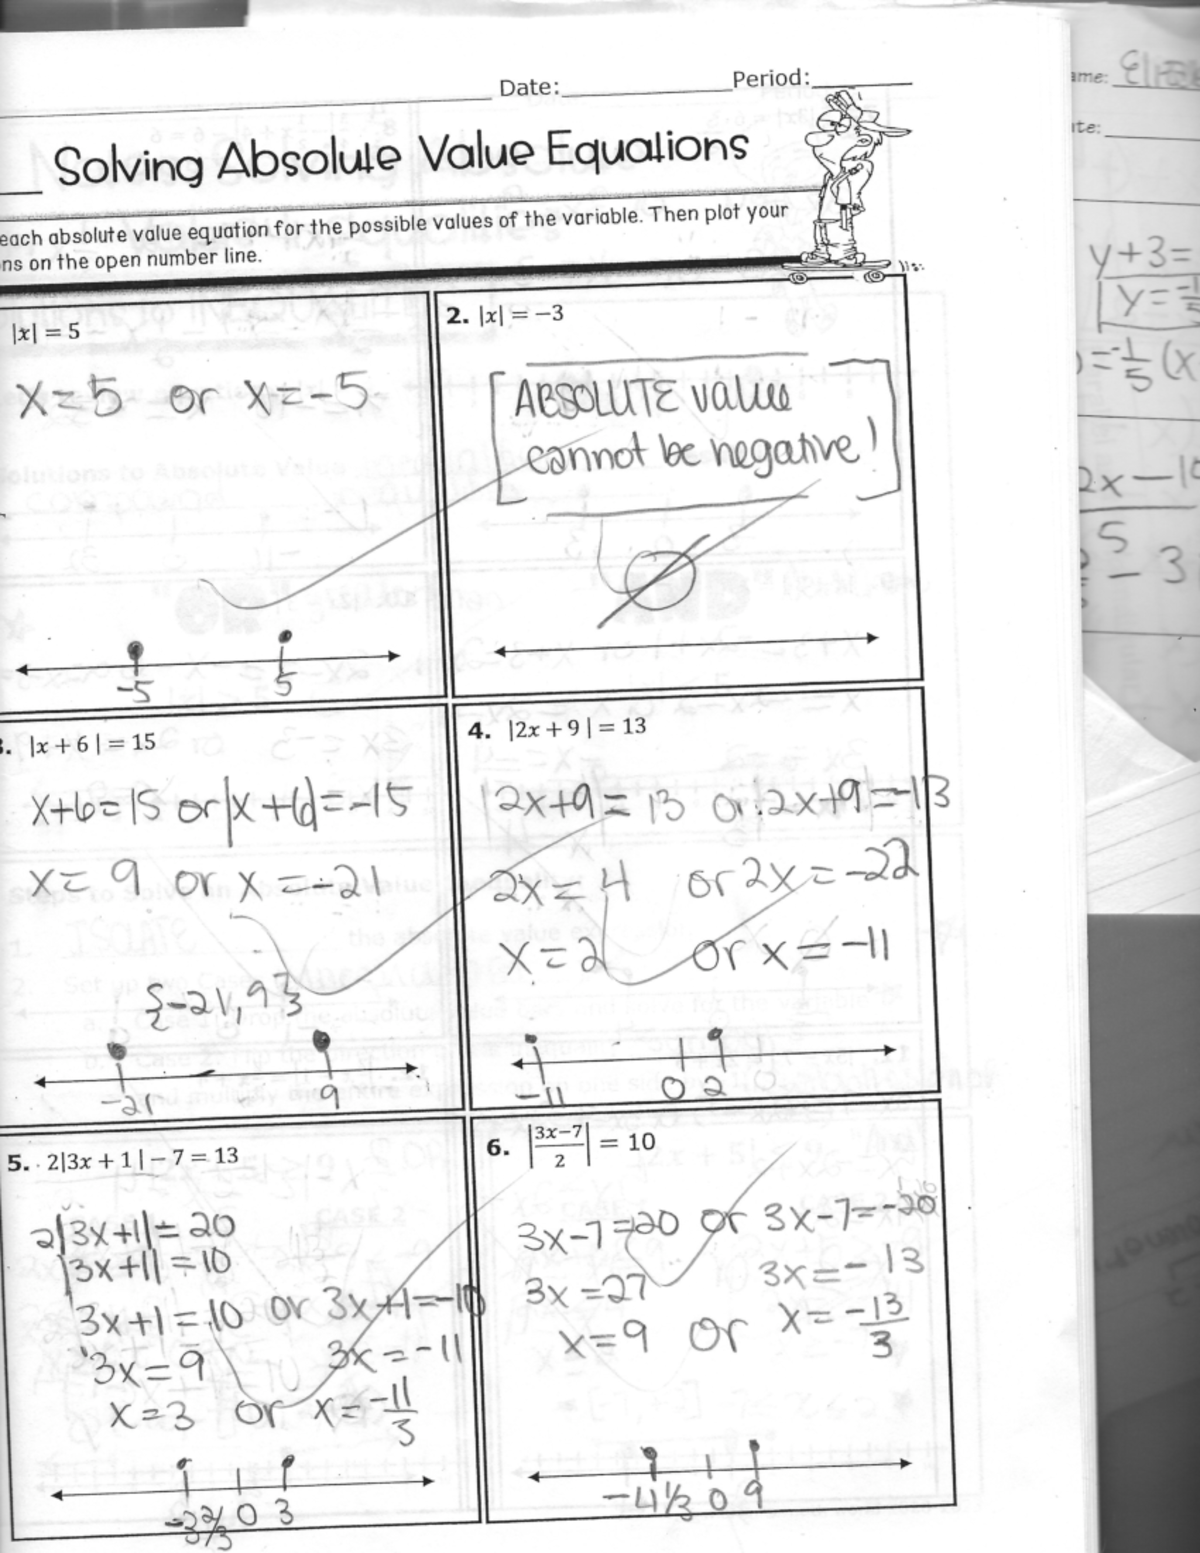 Date: Period:
Solving Absolute Value Equations
each absolute value equation for the possible values of the variable. Then plot your
ns on the open number line.
|x| = 5
x=5 or x=-5
-5 5
2. |x| = −3
ABSOLUTE value
cannot be negative!
3. |x + 6| = 15
x+6=15 or |x+6|=-15
x= 9 or x = -21
{-21, 9}
-21 9
4. |2x + 9| = 13
|2x+9 = 13 or |2x+9|=-13
2x = 4 or 2x = -22
x=2 or x = -11
-11 0 2
5. 2|3x + 1| − 7 = 13
2|3x+1| = 20
|3x+1| = 10
3x+1=10 or 3x+1=-10
3x=9 3x=-11
x=3 or x=-11/3
-3 2/3 0 3
6. |3x−7/2| = 10
3x-7=20 or 3x-7=-20
3x=27 3x=-13
x=9 or x=-13/3
-4 1/3 0 9
ame:
te:
y+3=
y=-1/5
=-1/5(x
2x-10
5
-3